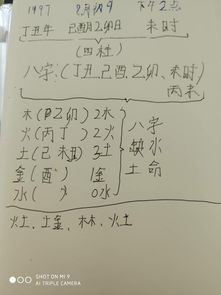 1997 2月初9 下午2点
丁丑年 己酉月乙卯日 未时
(四柱)
八字:(丁丑,己酉,乙卯、未时)
丙未
木(乙卯)2水
火(丙丁)2火
土(己未丑)3土
金(酉)1金
水( )0水
八字
缺水
土命
火土、土金、木木、火土
SHOT ON MI 9
AI TRIPLE CAMERA